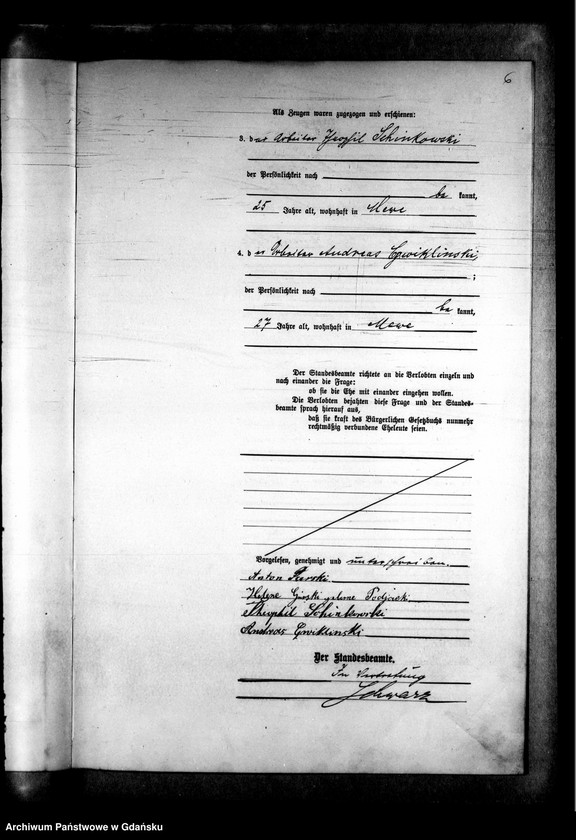 6
Als Zeugen waren zugezogen und erschienen:
3. der Arbeiter Schinkowski
der Persönlichkeit nach
be kannt,
25 Jahre alt, wohnhaft in Mewe
4. der Arbeiter Andreas Cwiklinski,
;
der Persönlichkeit nach
be kannt,
27 Jahre alt, wohnhaft in Mewe
Der Standesbeamte richtete an die Verlobten einzeln und
nach einander die Frage:
ob sie die Ehe mit einander eingehen wollen.
Die Verlobten bejahten diese Frage und der Standes-
beamte sprach hierauf aus,
daß sie kraft des Bürgerlichen Gesetzbuchs nunmehr
rechtmäßig verbundene Eheleute seien.
Vorgelesen, genehmigt und unterschrieben.
Anton
Helene geborne
Schinkowski
Andreas Cwiklinski
Der Standesbeamte.
In Vertretung
Schwarz
Archiwum Państwowe w Gdańsku